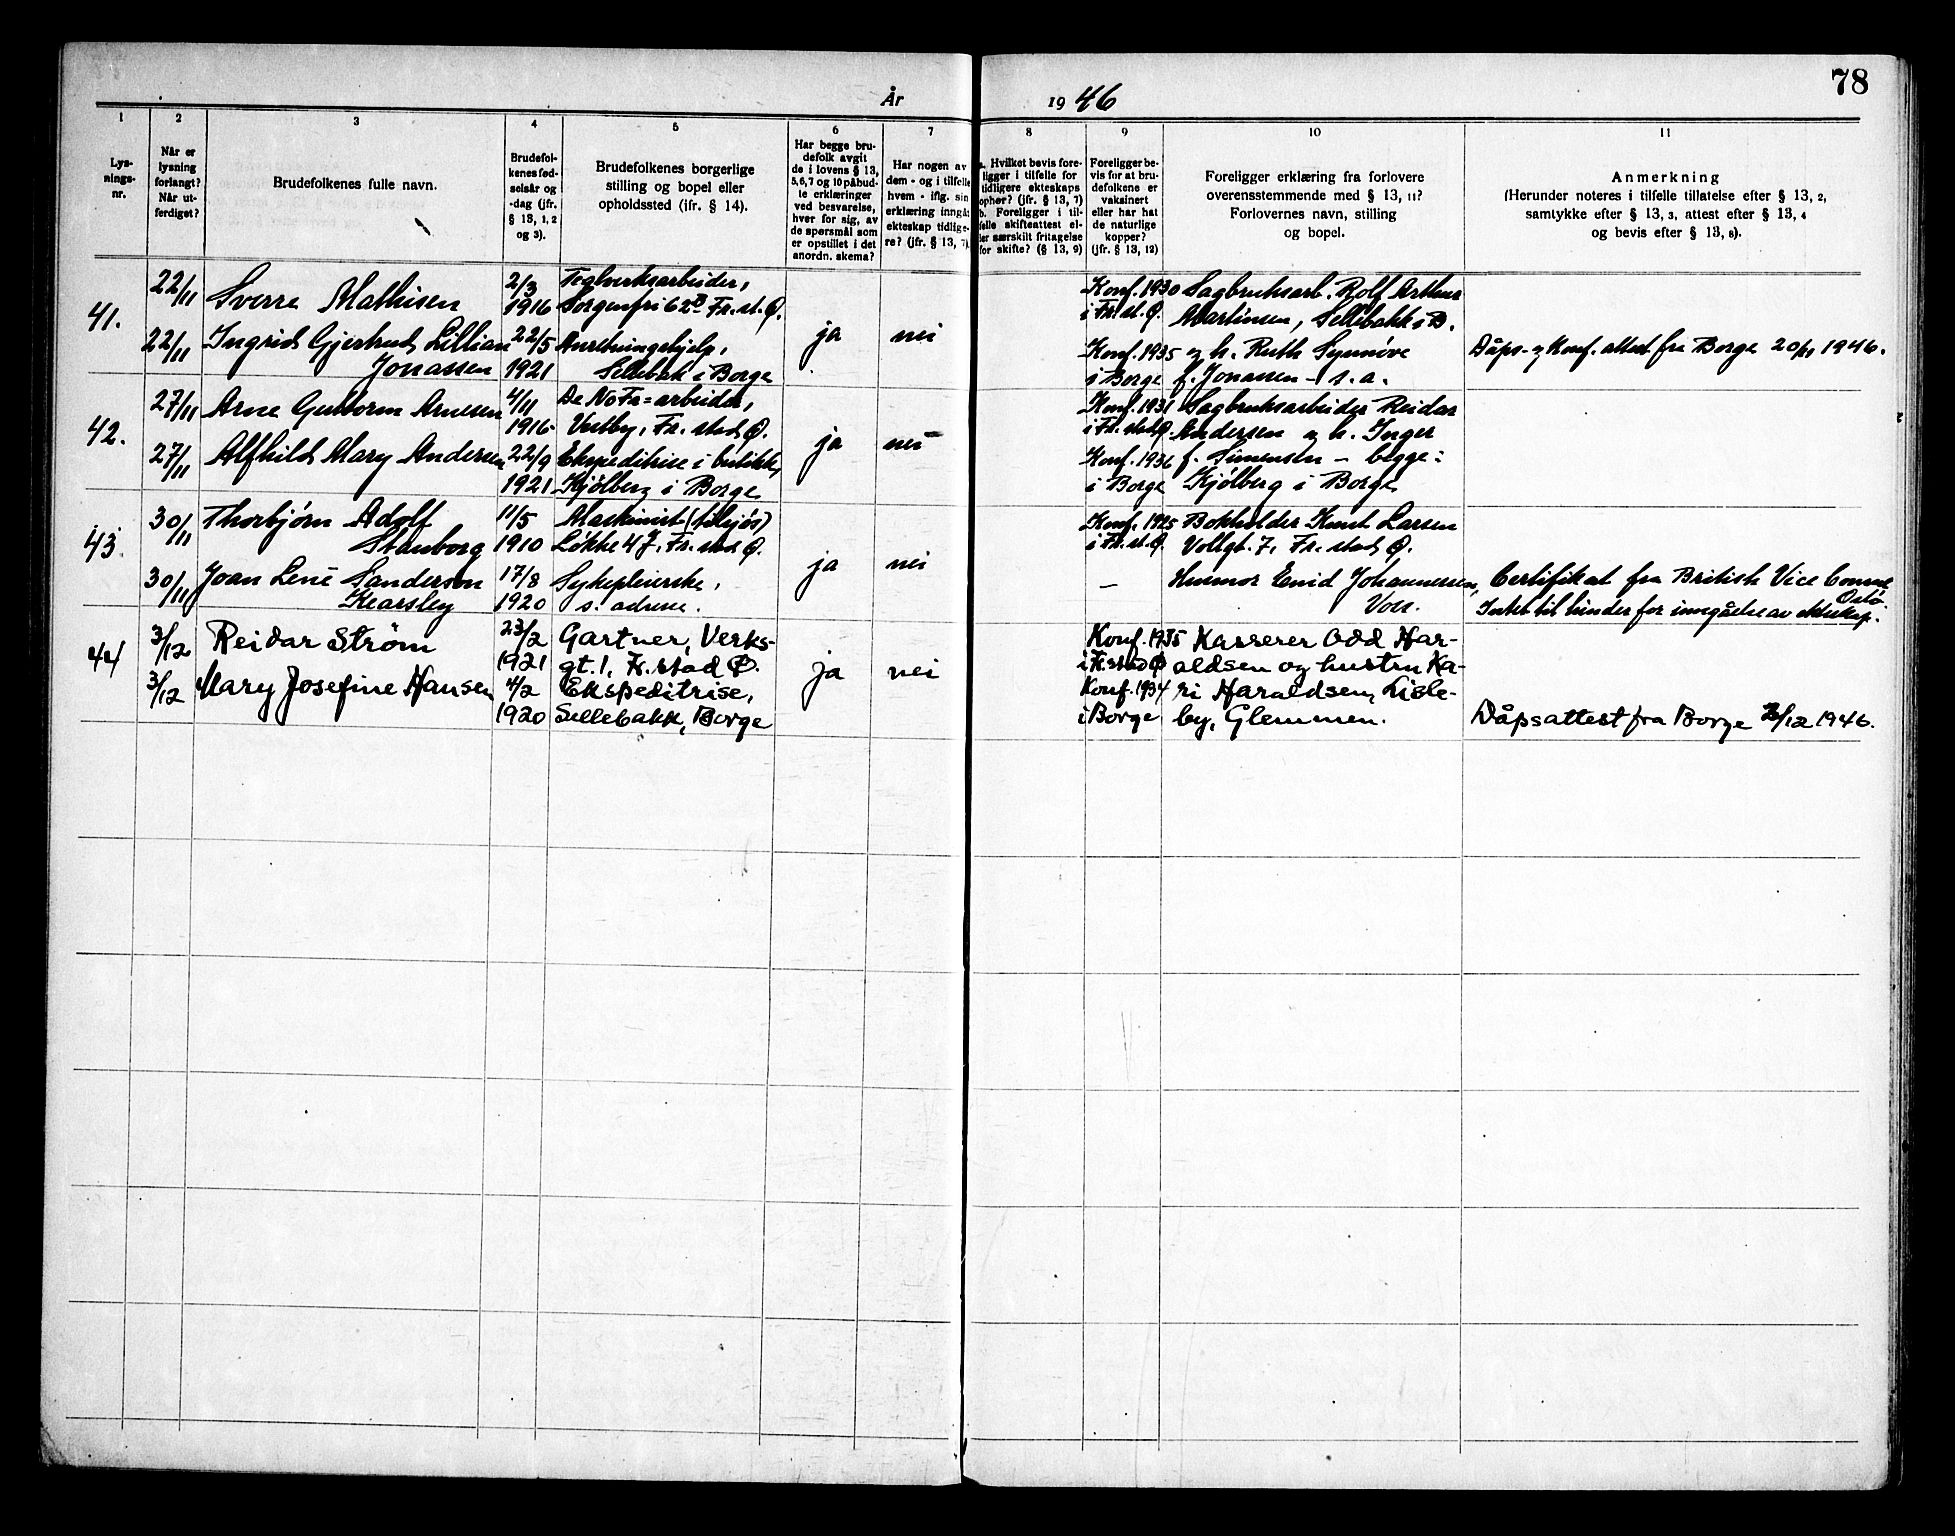 78
År 1946
1 2 3 4 5 6 7 8 9 10 11
Lys-
nings-
nr.
Når er
lysning
forlangt?
Når ut-
ferdiget?
Brudefolkenes fulle navn.
Brudefol-
kenes fød-
selsår og
-dag (jfr.
§ 13, 1, 2
og 3).
Brudefolkenes borgerlige
stilling og bopel eller
opholdssted (ifr. § 14).
Har begge bru-
defolk avgit
de i lovens § 13,
5,6,7 og 10 påbud-
le erklæringer
ved besvarelse,
hver for sig, av
de spørsmål som
er opstillet i det
anordn. skema?
Har nogen av
dem - og i tilfelle
hvem - iflg. sin
erklæring inngåt
ekteskap tidlige-
re? (jfr. § 13, 7).
a. Hvilket bevis fore-
ligger i tilfelle for
tidligere ekteskaps
ophør? (jfr. § 13, 7)
b. Foreligger i til-
felle skifteattest el-
ler særskilt fritagelse
for skifte? (§ 13, 9)
Foreligger be-
vis for at bru-
defolkene er
vaksinert
eller har hat
de naturlige
kopper?
(jfr. § 13, 12)
Foreligger erklæring fra forlovere
overensstemmende med § 13, 11?
Forlovernes navn, stilling
og bopel.
Anmerkning
(Herunder noteres i tilfelle tillatelse efter § 13, 2,
samtykke efter § 13, 3, attest efter § 13, 4
og bevis efter § 13, 8).
41.
22/11
Sverre Mathisen
2/3
1916
Teglverksarbeider,
Sorgenfri 62B Fr.st.Ø.
22/11
Ingrid Gjertrud Lillian
Jonassen
22/5
1921
Anretningshjelp,
Sellebak i Borge
ja
nei
Konf. 1930
i Fr.st.Ø.
Konf. 1935
i Borge
Sagbruksarb. Rolf Arthur
Martinsen, Sellebakk i B.
og h. Ruth Synnöve
f. Jonassen - s.a.
Dåps- og Konf. attest fra Borge 20/11 1946.
42.
27/11
Arne Guttorm Arnesen
4/11
1916
De NoFa=arbeider,
Vestby, Fr.stad Ø.
27/11
Alfhild Mary Andersen
22/9
1921
Ekspeditrise i butikk,
Kjölberg i Borge
ja
nei
Konf. 1931
i Fr.stadØ.
Konf. 1936
i Borge
Sagbruksarbeider Reidar
Andersen og h. Inger
f. Simensen - begge:
Kjölberg i Borge
43.
30/11
Thorbjörn Adolf
Stanborg
11/5
1910
Maskinist (tilsjøs)
Løkke 4 J, Fr.stad Ø.
30/11
Joan Lene Sanderson
Kearsley
17/8
1920
Sykepleierske,
s. adresse.
ja
nei
Konf. 1925
i Fr.st.Ø.
-
Bokholder Knut Larsen
Vollgt. 7, Fr.stad Ø.
Husmor Enid Johannersen,
Certifikat fra British Vice Consul
Oslo.
Intet til hinder for inngåelse av ekteskap.
44
3/12
Reidar Ström
23/2
1921
Gartner, Verks-
gt. 1, Fr.stad Ø.
3/12
Mary Josefine Hansen
4/2
1920
Ekspeditrise,
Sellebakk, Borge
ja
nei
Konf. 1935
i Fr.stad Ø
Konf. 1934
i Borge
Kasserer Odd Har-
aldsen og hustru Ka-
ri Haraldsen, Lisle-
by, Glemmen.
Dåpsattest fra Borge /12 1946.